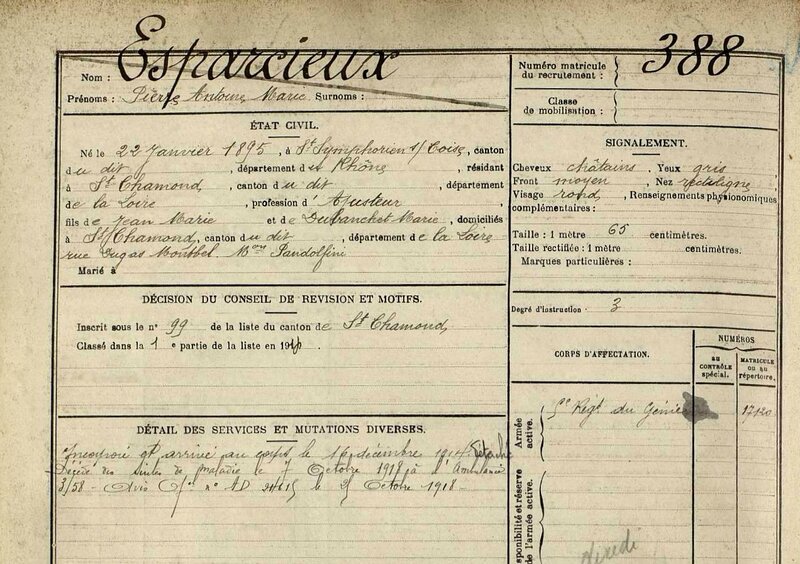 Esparcieux
Nom :
Prénoms : Pierre Antoine Marie Surnoms :
Numéro matricule du recrutement : 388
Classe de mobilisation :
ÉTAT CIVIL.
Né le 22 Janvier 1895, à St Symphorien s/ Coise, canton
du dit, département du Rhône, résidant
à St Chamond, canton du dit, département
de la Loire, profession d'Ajusteur
fils de Jean Marie et de Dufranchet Marie, domiciliés
à St Chamond, canton du dit, département de la Loire
rue Dugas Montbel, Mon Pandolfini
Marié à
SIGNALEMENT.
Cheveux châtains, Yeux gris
Front moyen, Nez rectiligne
Visage rond, Renseignements physionomiques
complémentaires :
Taille : 1 mètre 65 centimètres.
Taille rectifiée : 1 mètre centimètres.
Marques particulières :
Degré d'instruction : 3
DÉCISION DU CONSEIL DE REVISION ET MOTIFS.
Inscrit sous le n° 99 de la liste du canton de St Chamond
Classé dans la 1 e partie de la liste en 191
DÉTAIL DES SERVICES ET MUTATIONS DIVERSES.
Incorporé et arrivé au corps le 16 décembre 1914.
Décédé des suites de maladie le 7 Octobre 1918 à l'Ambulance
3/58 - Avis n° AD le Octobre 1918 -
CORPS D'AFFECTATION.
NUMÉROS
au CONTRÔLE spécial.
MATRICULE ou au répertoire.
Armée active.
Régt du Génie 17120
sponibilité et réserve de l'armée active.